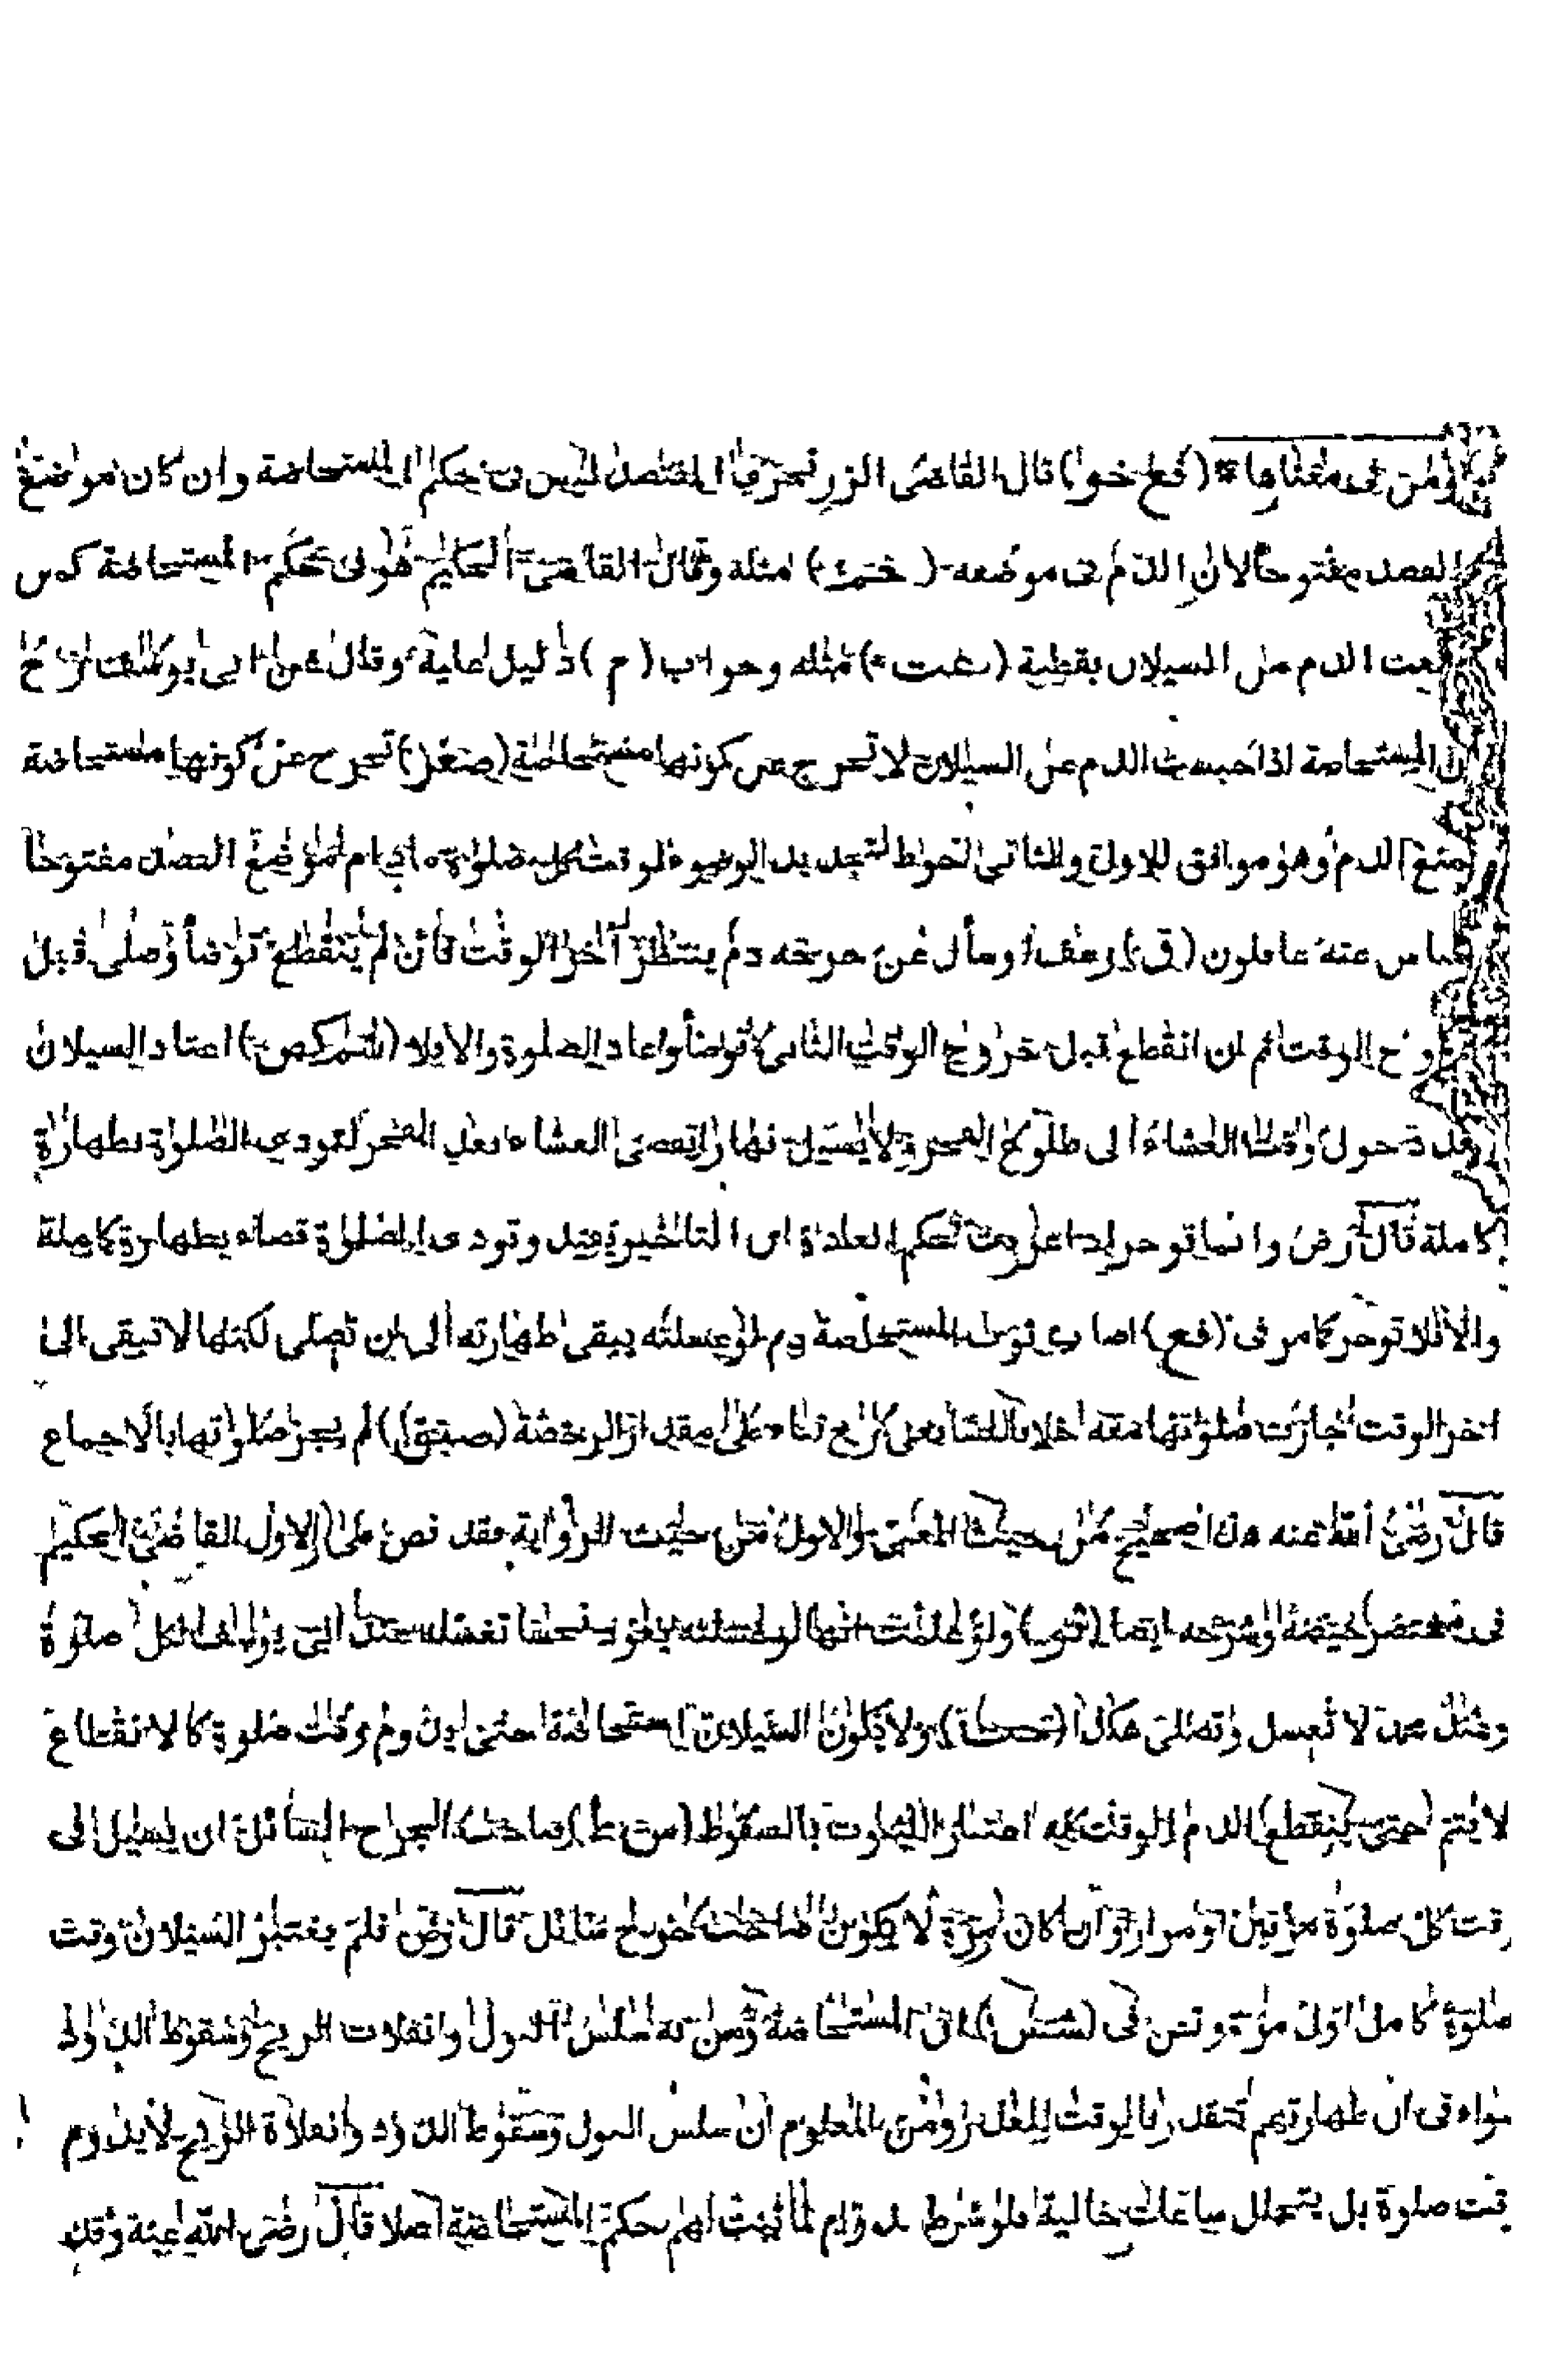 ومن فى معناها * (فع خو) قال القاضى الزرنجرى المفتصد ليس فى حكم المستحاضة وان كان موضع
الفصد مفتوحا لان الدم فى موضعه (خمر) مثله وقال القاضى الحكيم هو فى حكم المستحاضة كمن
منعت الدم من السيلان بقطنة (شت) مثله وجواب (م) دليل عليه وقال عن ابى يوسف رح
ان المستحاضة اذا حبست الدم عن السيلان لا تخرج عن كونها مستحاضة (صغر) تخرج عن كونها مستحاضة
بمنع الدم وهو موافق للاول والثانى احوط لتجديد الوضوء لوقت كل صلوة ما دام موضع الفصد مفتوحا
والناس عنه غافلون (ق) رعف او سأل عن جرحه دم ينتظر آخر الوقت فان لم ينقطع توضأ وصلى قبل
خروج الوقت ثم ان انقطع قبل خروج الوقت الثانى توضأ واعاد الصلوة والا فلا اعتاد السيلان
دخول وقت العشاء الى طلوع الفجر ولا يسيل نهارا يقضى العشاء بعد الفجر لتؤدى الصلوة بطهارة
كاملة قال رض وانما توخر اذا عزمت لحكم العادة اى التاخير وتودى الصلوة قضاء بطهارة كاملة
والا فلا توخر كما مر فى (فع) اصاب ثوب المستحاضة دم لو غسلته يبقى طهارته الى ان تصلى لكنها لا تبقى الى
اخر الوقت جازت صلوتها معه خلافا للشافعى رح بناء على مقدار الرخصة لم يجز صلوتها بالاجماع
قال رضى الله عنه هذا صحيح من حيث المعنى والاول من حيث الرواية فقد نص على الاول القاضى الحكيم
فى مختصر حيضه وشرحه ايضا ولو علمت انها لو غسلته يعود نجسا تغسله عند ابى يوسف لكل صلوة
وعند محمد لا تغسل وتصلى هكذا ولا يكون السيلان استحاضة حتى يدوم وقت صلوة كالانقطاع
لا يتم حتى ينقطع الدم الوقت كله اعتبار الثبوت بالسقوط (من ط) صاحب الجراح السائل ان يسيل فى
وقت كل صلوة مرتين او مرارا وان كان مرة لا يكون صاحب جراح سائل قال رض فلم يعتبر السيلان وقت
صلوة كامل اول مرة ونس فى ان المستحاضة ومن به سلس البول وانفلات الريح وسقوط الدود
سواء فى ان طهارتهم تتقدر بالوقت للعذر ومن المعلوم ان سلس البول وسقوط الدود وانفلات الريح لا يدوم
وقت صلوة بل يتخلل ساعات خالية فلو شرط دوام لما ثبت لهم حكم المستحاضة اصلا قال رضى الله عنه وقد